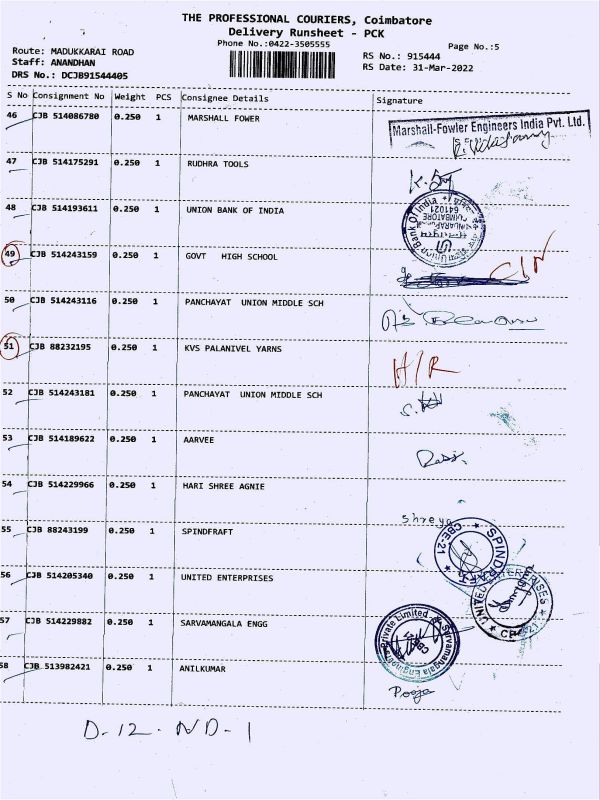 THE PROFESSIONAL COURIERS, Coimbatore
Delivery Runsheet - PCK
Phone No.:0422-3505555
Page No.:5
Route: MADUKKARAI ROAD
RS No.: 915444
Staff: ANANDHAN
RS Date: 31-Mar-2022
DRS No.: DCJB91544405
S No Consignment No Weight PCS Consignee Details Signature
46 CJB 514086780 0.250 1 MARSHALL FOWER
Marshall-Fowler Engineers India Pvt. Ltd.
47 CJB 514175291 0.250 1 RUDHRA TOOLS
48 CJB 514193611 0.250 1 UNION BANK OF INDIA
Union Bank Of India
641021
COIMBATORE
49 CJB 514243159 0.250 1 GOVT HIGH SCHOOL
50 CJB 514243116 0.250 1 PANCHAYAT UNION MIDDLE SCH
51 CJB 88232195 0.250 1 KVS PALANIVEL YARNS
H/R
52 CJB 514243181 0.250 1 PANCHAYAT UNION MIDDLE SCH
53 CJB 514189622 0.250 1 AARVEE
54 CJB 514229966 0.250 1 HARI SHREE AGNIE
Shreya
55 CJB 88243199 0.250 1 SPINDFRAFT
CBE-21
56 CJB 514205340 0.250 1 UNITED ENTERPRISES
UNITED ENTERPRISES
57 CJB 514229882 0.250 1 SARVAMANGALA ENGG
Sarvamangala Engineering Private Limited
58 CJB 513982421 0.250 1 ANILKUMAR
Pooja
D-12. ND-1